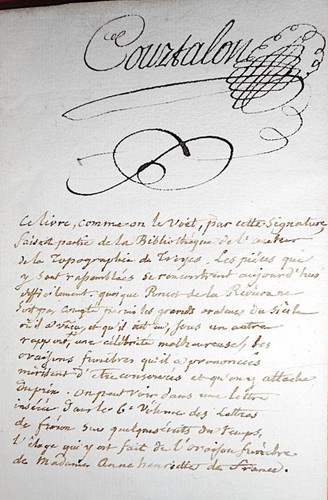 Courtalon
Ce livre, comme on le voit, par cette Signature
faisait partie de la Bibliothèque de l'auteur
de la Topographie de Troyes. Les pièces que
y sont rassemblées se rencontrent aujourd'hui
difficilement. quoique Poncet de la Rivière ne
soit pas compté parmi les grands orateurs du Siècle
où il a vécu, et qu'il ait eu, sous un autre
rapport, une célébrité malheureuse, les
oraisons funèbres qu'il a prononcées
méritent d'être conservées et qu'on y attache
du prix. on peut voir dans une lettre
insérée dans le 6e Volume des lettres
de freron sur quelques écrits du temps,
l'éloge qui y est fait de l'oraison funèbre
de Madame Anne henriette de France.